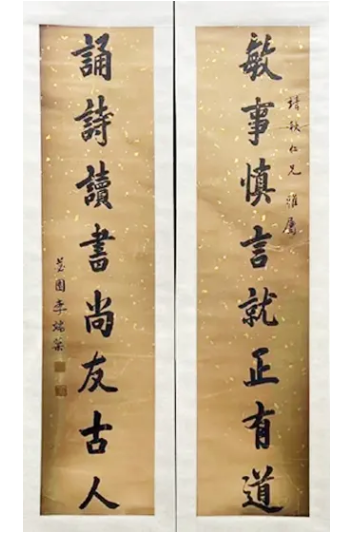 敏事慎言就正有道
仁兄 雅屬
誦詩讀書尚友古人
苾園李端棻